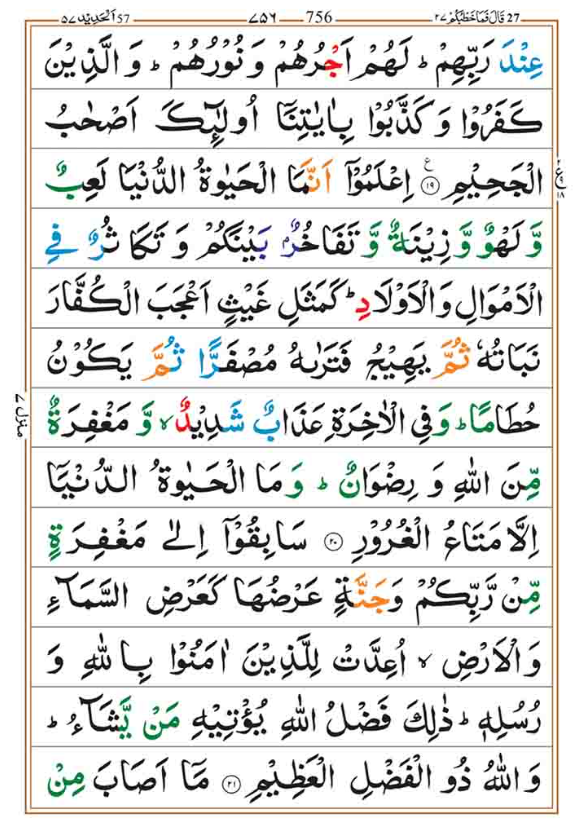 27 قَالَ فَمَا خَطْبُكُمْ ٢٧ 756 ٧٥٦ 57 اَلْحَدِيْد ٥٧
عِنْدَ رَبِّهِمْ ؕ لَهُمْ اَجْرُهُمْ وَ نُوْرُهُمْ ؕ وَ الَّذِيْنَ
كَفَرُوْا وَ كَذَّبُوْا بِاٰيٰتِنَاۤ اُولٰٓىِٕكَ اَصْحٰبُ
الْجَحِيْمِ ۝١٩ ع اِعْلَمُوْۤا اَنَّمَا الْحَيٰوةُ الدُّنْيَا لَعِبٌ
وَّ لَهْوٌ وَّ زِيْنَةٌ وَّ تَفَاخُرٌۢ بَيْنَكُمْ وَ تَكَاثُرٌ فِي
الْاَمْوَالِ وَ الْاَوْلَادِ ؕ كَمَثَلِ غَيْثٍ اَعْجَبَ الْكُفَّارَ
نَبَاتُهٗ ثُمَّ يَهِيْجُ فَتَرٰىهُ مُصْفَرًّا ثُمَّ يَكُوْنُ
حُطَامًا ؕ وَ فِي الْاٰخِرَةِ عَذَابٌ شَدِيْدٌ ۙ وَّ مَغْفِرَةٌ
مِّنَ اللّٰهِ وَ رِضْوَانٌ ؕ وَ مَا الْحَيٰوةُ الدُّنْيَاۤ
اِلَّا مَتَاعُ الْغُرُوْرِ ۝٢٠ سَابِقُوْۤا اِلٰى مَغْفِرَةٍ
مِّنْ رَّبِّكُمْ وَ جَنَّةٍ عَرْضُهَا كَعَرْضِ السَّمَآءِ
وَ الْاَرْضِ ۙ اُعِدَّتْ لِلَّذِيْنَ اٰمَنُوْا بِاللّٰهِ وَ
رُسُلِهٖ ؕ ذٰلِكَ فَضْلُ اللّٰهِ يُؤْتِيْهِ مَنْ يَّشَآءُ ؕ
وَ اللّٰهُ ذُو الْفَضْلِ الْعَظِيْمِ ۝٢١ مَاۤ اَصَابَ مِنْ
منزل ٧